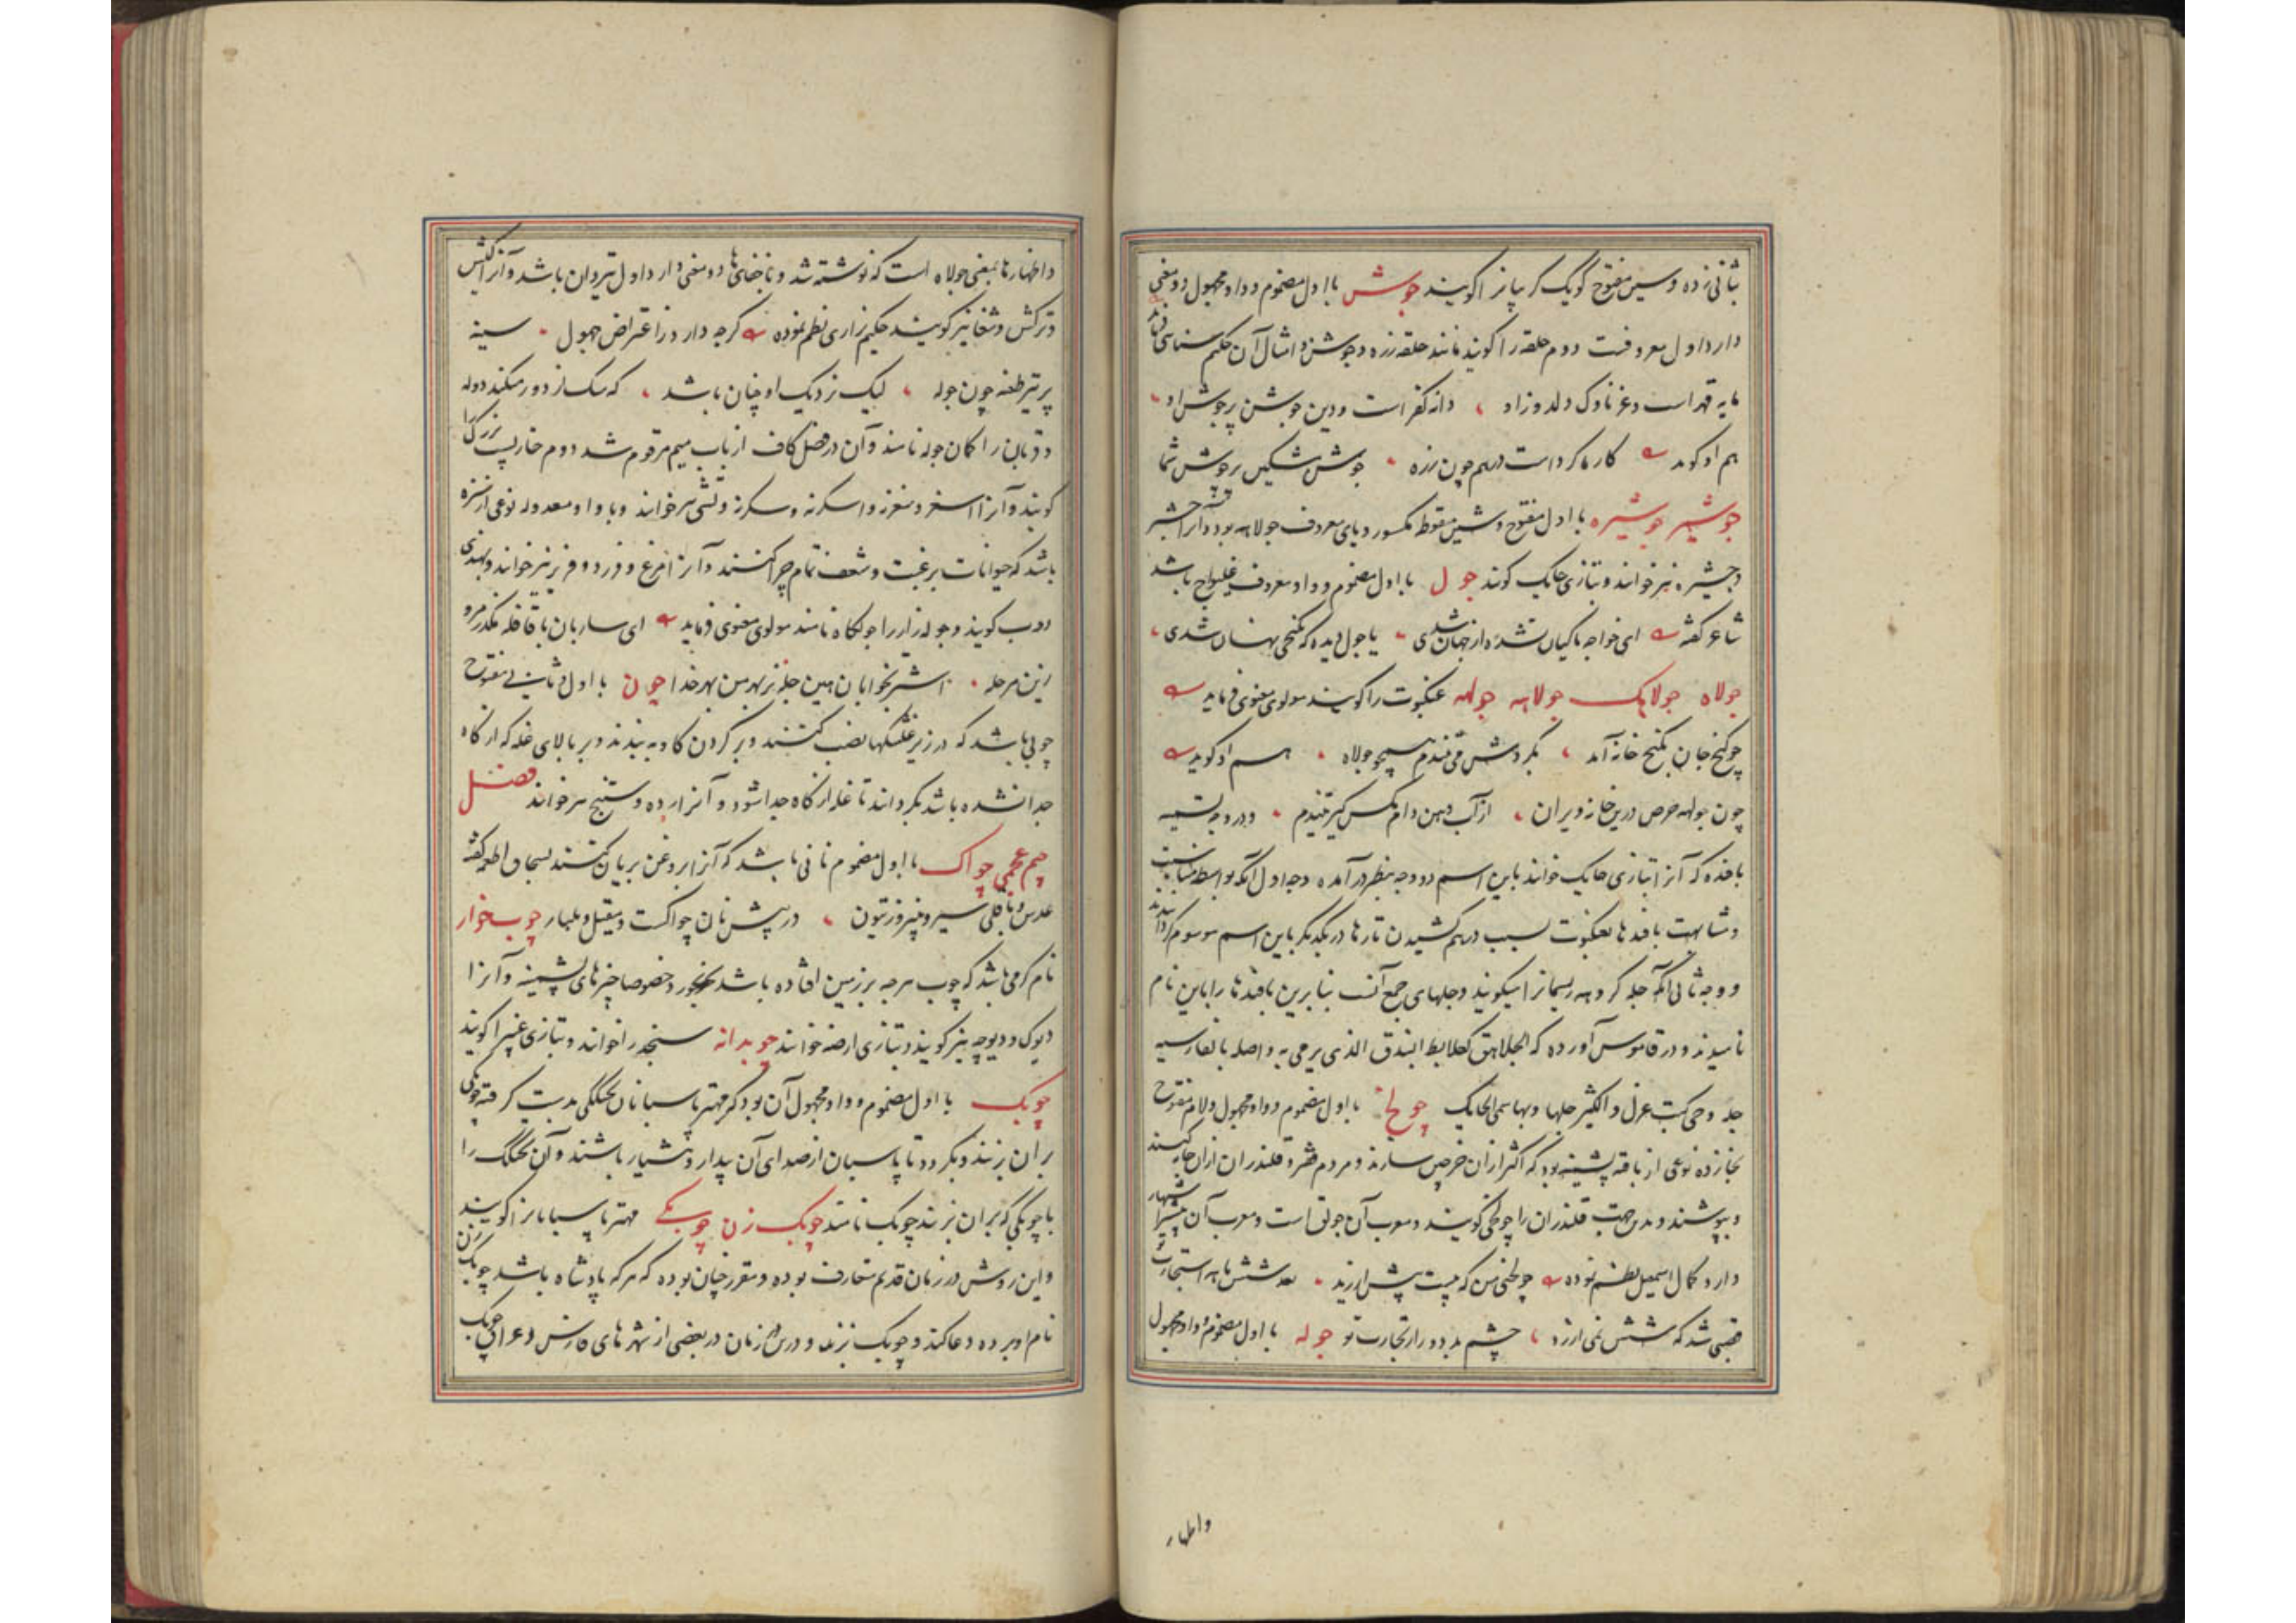 بثانی زده و سین مفتوح گویک کریبانرا کویند جوش با اول مضموم و واو مجهول دو معنی
دارد اول معروفست دوم حلقه را کویند مانند حلقه زره و جوشن و امثال آن حکیم سنائی
مایه قهر است و غم ناوک دلدوز او دانه کفر است و دین جوشن پر جوش او
هم او کوید کارها کرداست درهم چون زره جوش مشکین بر جوش شما
جوشیر جوشیره با اول مفتوح و شین منقوط مکسور و یای معروف جولاهه بود و آنرا جشیر
و جشیره نیز خوانند و بتازی حایک کویند جول با اول مضموم و واو معروف غلیواج باشد
شاعر کفته ای خواجه با کیان شده از جهان شدی یا جول دیده که بکنجی نهان شدی
جولاه جولاهک جولاهه جولهه عنکبوت را کویند مولوی معنوی فرماید
چو کنج جان بکنج خانه آمد بکردش می تندم همچو جولاه هم او کوید
چون جولهه حرص درین خانه ویران از آب دهن دام مکس کیر تنیدم و در وجه تسمیه
بافنده که آنرا بتازی حایک خوانند باین اسم دو وجه بنظر در آمده وجه اول آنکه بواسطه مناسبت
و مشابهت بافندها بعنکبوت بسبب درهم کشیدن تارها در یکدیکر باین اسم موسوم کردانیدند
و وجه ثانی آنکه جله کروهه ریسمانرا میکویند و جلهای جمع آنست بنابرین بافندها را باین نام
نامیدند و در قاموس آورده که الجلاهق کعلابط البندق الذی یرمی به و اصله بالفارسیه
جله وهی کبت غزل والکثیر جلها وبها سمی الحایک چولخ با اول مضموم و واو مجهول و لام مفتوح
بخا زده نوعی از بافته پشمینه بود که اکثر ازان خرجین سازند و مردم فقیر و قلندران ازان جامه کنند
و بپوشند و بدین جهت قلندران را چولخی کویند و معرب آن جولق است و معرب آن اشتهار
دارد کمال اسمعیل نظم نموده چولخی من که بیست پیش ارزید بعد شش ماهه استجارت
قحبی شد که شش نمی ارزد چشم بد دور از تجارت تو جوله با اول مضموم و واو مجهول
واظهار
واظهار ها بمعنی جولاه است که نوشته شد و باخفای ها دو معنی دارد اول تیردان باشد و آنرا کیش
و ترکش و شغا نیز کویند حکیم نزاری نظم نموده کرچه دارد ز اعتراض جهول سینه
پر تیر طعنه چون جوله لیک نزدیک او چنان باشد که سک از دور میکند دوله
و قربان را کمان جوله نامند و آن در فصل کاف از باب میم مرقوم شد دوم خارپشت بزرک را
کویند و آنرا اسغر و سغر و اسکرنه و سکرنه و تشی نیز خوانند و با واو معدوله نوعی از سبزه
باشد که حیوانات برغبت و شعف تمام چرا کنند و آنرا مرغ و فرزد و فریز نیز خوانند و بهندی
دوب کویند و جوله زار را جولکاه نامند مولوی معنوی فرماید ای ساربان با قافله مکذر مرو
زین مرحله اشتر بخوابان هین جله نز بهر من بهر خدا جون با اول و ثانی مفتوح
چوبی باشد که در زیر غلتکها نصب کنند و بر کردن کاو به بندند و بر بالای غله که از کاه
جدا نشده باشد بکردانند تا غله از کاه جدا شود و آنرا برده و ستنج نیز خوانند فصل
جیم عجمی چواک با اول مضموم نانی باشد که آنرا بروغن بریان کنند بسحاق اطعمه کفته
عدس و باقلی سیر و پنیر و زیتون در پیش نان چواکست و میقتل و بلغار چوب خوار
نام کرمی باشد که چوب هرچه بر زمین افتاده باشد بخورد خصوصا چیزهای پشمینه و آنرا
دیوک و دیوچه نیز کویند و بتازی ارضه خوانند چوبدانه سنجد را خوانند و بتازی غبیرا کویند
چوبک با اول مضموم و واو مجهول آن بود که مهتر پاسبانان تخلکی بدست کرفته چوبکی
بران بزند و بکردد تا پاسبان از صدای آن بیدار و هشیار باشند و آن تختک را
با چوبکی که بران بزند چوبک نامند چوبک زن چوبکی مهتر پاسبانانرا کویند
و این روش در زمان قدیم متعارف بوده و مقرر چنان بوده که هر که پادشاه باشد چوبک زن
نام او برده دعا کند و چوبک بزند و درین زمان در بعضی از شهرهای فارس و عراق چوبک